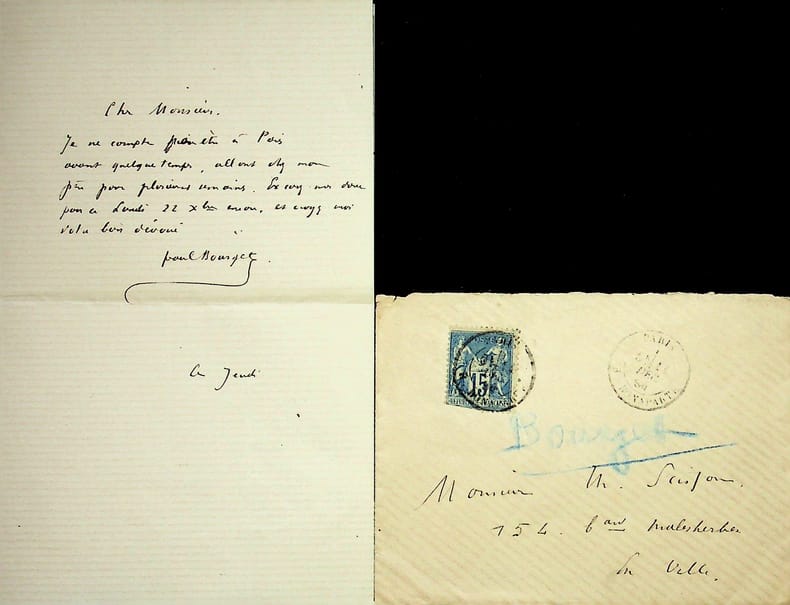 Cher Monsieur.
Je ne compte pas être à Paris
avant quelque temps, allant chez mon
père pour plusieurs semaines. Excusez moi donc
pour ce Lundi 22 Xbre encore, et croyez moi
votre bien dévoué
Paul Bourget
Ce Jeudi
15
PARIS
Bourget
Monsieur Th.
154 bard Malesherbes
En Ville.